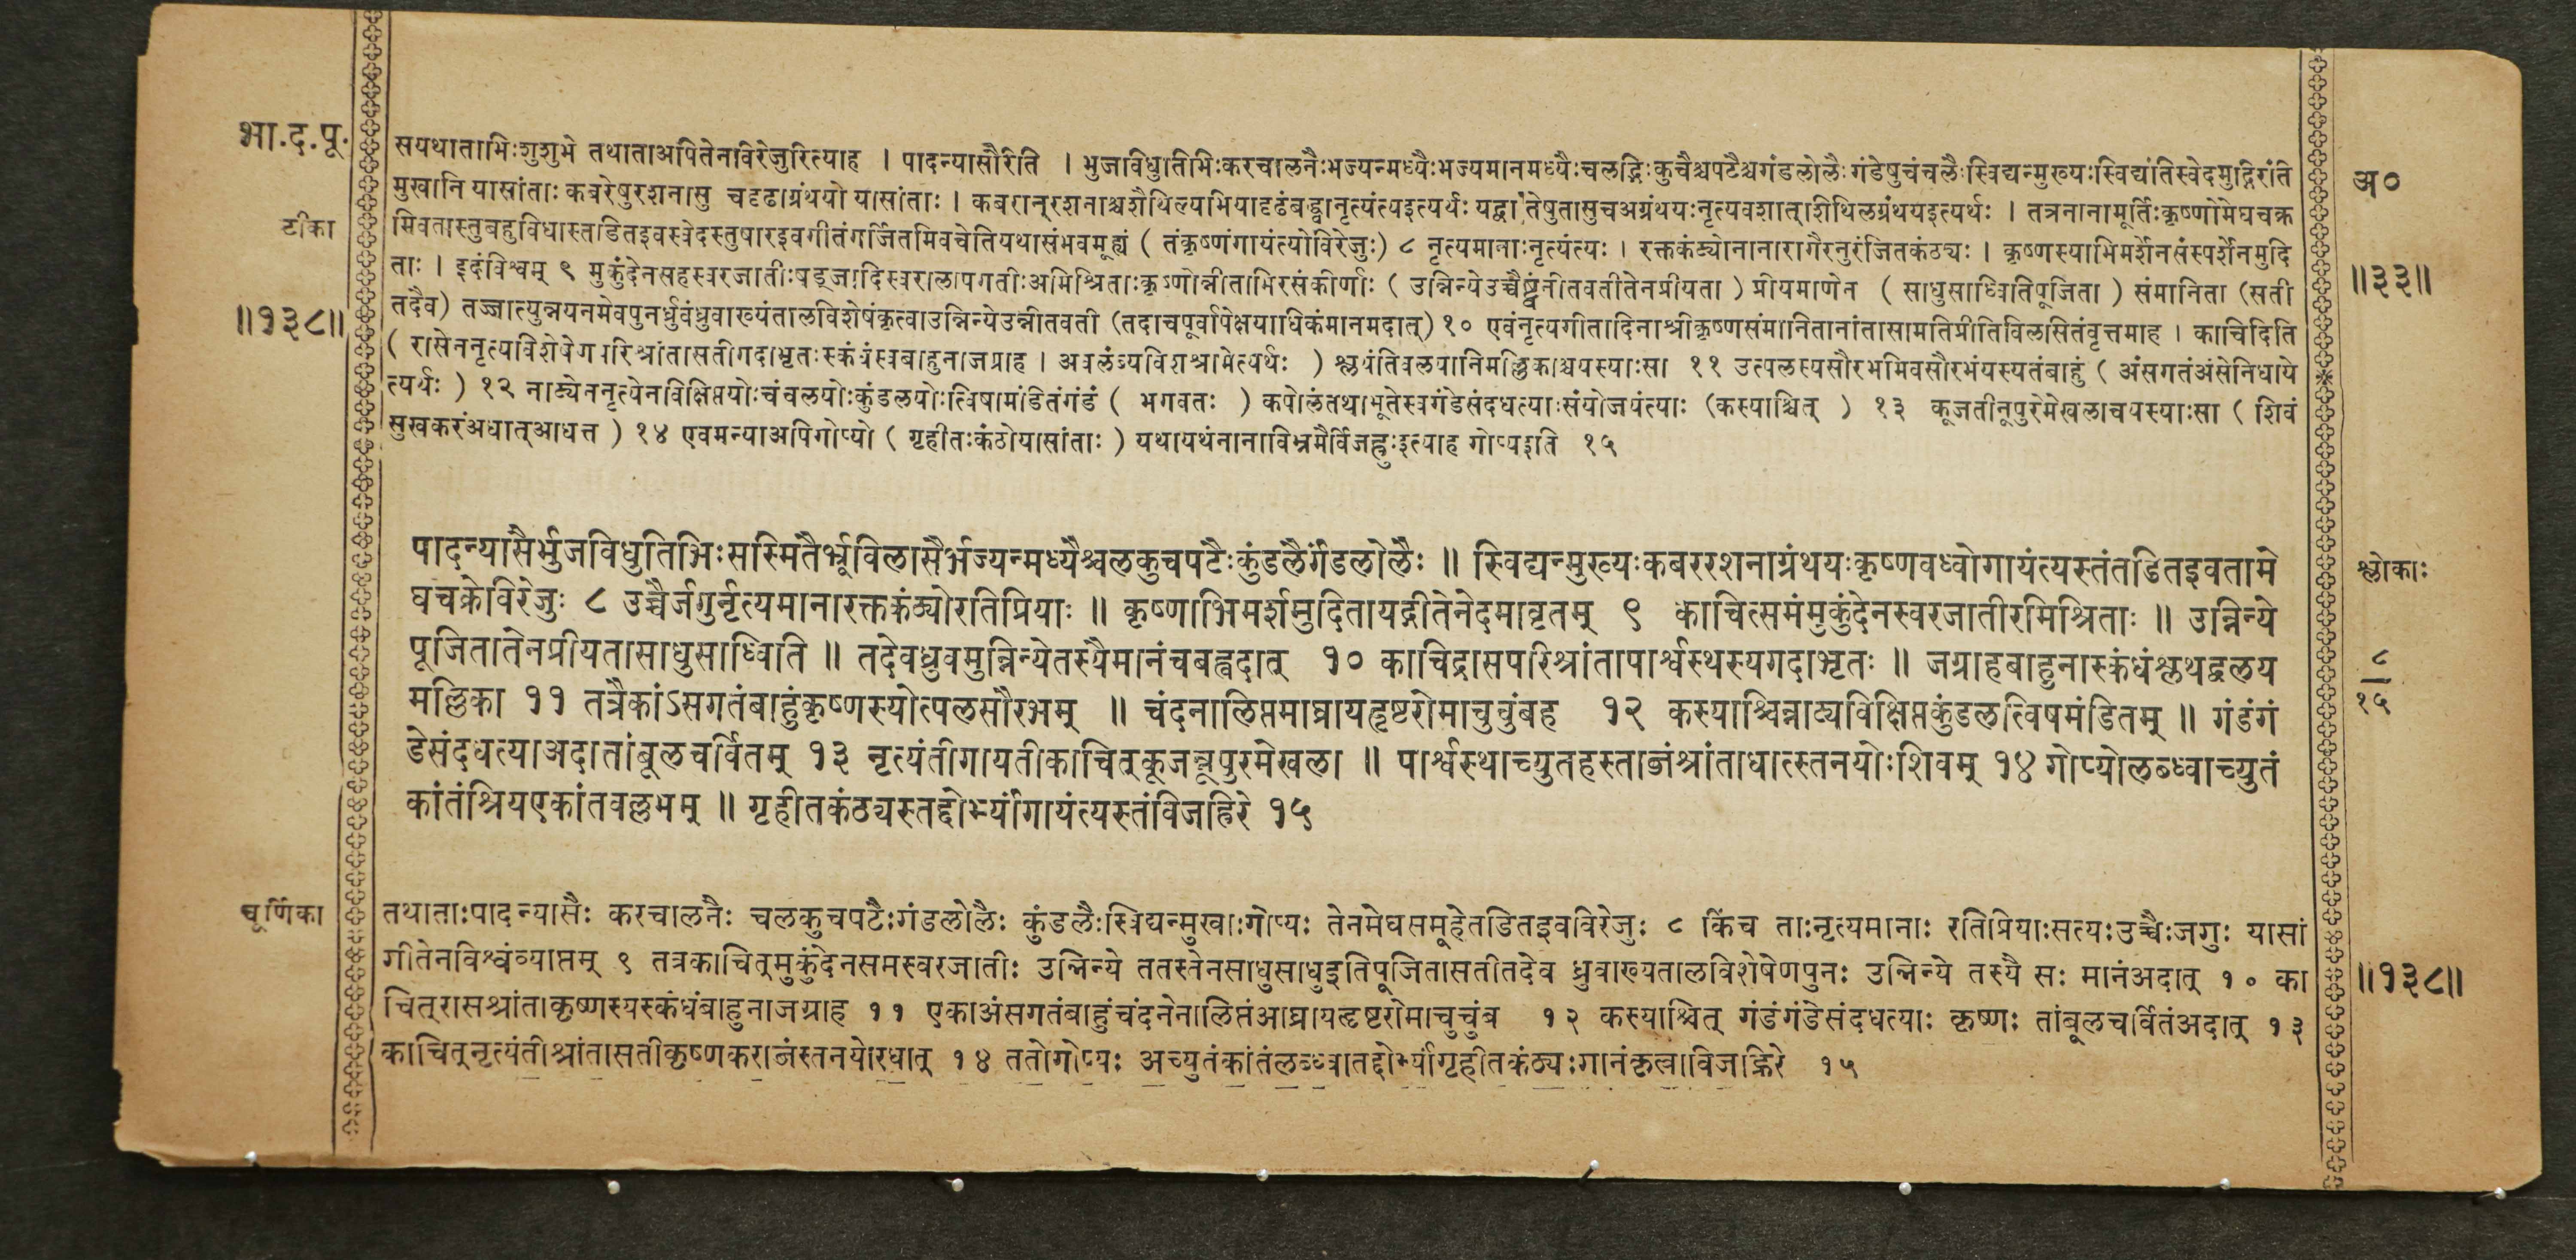 भा.द.पू.
सयथाताभिःशुशुभे तथाताअपितेनविरेजुरित्याह । पादन्यासैरिति । भुजविधुतिभिःकरचालनैःभज्यन्मध्यैःभज्यमानमध्यैःचलद्भिःकुचैश्चपटैश्चगंडलोलैःगंडेषुचंचलैःस्विद्यन्मुख्यःस्विद्यंतिस्वेदमुद्गिरंति
अ०
मुखानि यासांताः कबरेषुरशनासु चदृढाग्रंथयो यासांताः । कबरान्रशनाश्चशैथिल्यभियादृढंबद्ध्वानृत्यंत्यइत्यर्थः यद्वा तेषुतासुचअग्रंथयःनृत्यवशात्शिथिलग्रंथयइत्यर्थः । तत्रनानामूर्तिःकृष्णोमेघचक्र
टीका
मिवतास्तुबहुविधास्तडितइवस्वेदस्तुषारइवगीतंगर्जितमिवचेतियथासंभवमूह्यं ( तंकृष्णंगायंत्योविरेजुः) ८ नृत्यमानाःनृत्यंत्यः । रक्तकंठ्योनानारागैरनुरंजितकंठ्यः । कृष्णस्याभिमर्शेनसंस्पर्शेनमुदि
ताः । इदंविश्वम् ९ मुकुंदेनसहस्वरजातीःषड्जादिस्वरालापगतीःअमिश्रिताःकृष्णोन्नीताभिरसंकीर्णाः ( उन्निन्येउच्चैर्नीतवतीतेनप्रीयता ) प्रीयमाणेन ( साधुसाध्वितिपूजिता ) संमानिता (सती
॥३३॥
॥१३८॥
तदैव) तज्जात्युन्नयनमेवपुनर्ध्रुवंध्रुवाख्यंतालविशेषंकृत्वाउन्निन्येउन्नीतवती (तदाचपूर्वापेक्षयाधिकंमानमदात्) १० एवंनृत्यगीतादिनाश्रीकृष्णसंमानितानांतासामतिप्रीतिविलसितंवृत्तमाह । काचिदिति
( रासेननृत्यविशेषेणपरिश्रांतासतीगदाभृतःस्कंधंस्वबाहुनाजग्राह । अवलंब्यविशश्रामेत्यर्थः ) श्लथंतिवलयानिमल्लिकाश्चयस्याःसा ११ उत्पलस्यसौरभमिवसौरभंयस्यतंबाहुं ( अंसगतंअंसेनिधाये
त्यर्थः ) १२ नाट्येननृत्येनविक्षिप्तयोःचंचलयोःकुंडलयोःत्विषामंडितंगंडं ( भगवतः ) कपोलंतथाभूतेस्वगंडेसंदधत्याःसंयोजयंत्याः (कस्याश्चित् ) १३ कूजतीनूपुरमेखलाचयस्याःसा ( शिवं
सुखकरंअधात्आधत्त ) १४ एवमन्याअपिगोप्यो ( गृहीतःकंठोयासांताः ) यथायथंनानाविभ्रमैर्विजह्रुःइत्याह गोप्यइति १५
पादन्यासैर्भुजविधुतिभिःसस्मितैर्भ्रूविलासैर्भज्यन्मध्यैश्चलकुचपटैःकुंडलैर्गंडलोलैः ॥ स्विद्यन्मुख्यःकबररशनाग्रंथयःकृष्णवध्वोगायंत्यस्तंतडितइवतामे
श्लोकाः
घचक्रेविरेजुः ८ उच्चैर्जगुर्नृत्यमानारक्तकंठ्योरतिप्रियाः ॥ कृष्णाभिमर्शमुदितायद्गीतेनेदमावृतम् ९ काचित्समंमुकुंदेनस्वरजातीरमिश्रिताः ॥ उन्निन्ये
पूजितातेनप्रीयतासाधुसाध्विति ॥ तदेवध्रुवमुन्निन्येतस्यैमानंचबह्वदात् १० काचिद्रासपरिश्रांतापार्श्वस्थस्यगदाभृतः ॥ जग्राहबाहुनास्कंधंश्लथद्वलय
८
१५
मल्लिका ११ तत्रैकांऽसगतंबाहुंकृष्णस्योत्पलसौरभम् ॥ चंदनालिप्तमाघ्रायहृष्टरोमाचुचुंबह १२ कस्याश्चिन्नाट्यविक्षिप्तकुंडलत्विषमंडितम् ॥ गंडंगं
डेसंदधत्याअदातांबूलचर्वितम् १३ नृत्यंतीगायतीकाचित्कूजन्नूपुरमेखला ॥ पार्श्वस्थाच्युतहस्ताब्जंश्रांताधात्स्तनयोःशिवम् १४ गोप्योलब्ध्वाच्युतं
कांतंश्रियएकांतवल्लभम् ॥ गृहीतकंठ्यस्तद्दोर्भ्यांगायंत्यस्तंविजह्रिरे १५
चूर्णिका
तथाताःपादन्यासैः करचालनैः चलकुचपटैःगंडलोलैः कुंडलैःस्विद्यन्मुखाःगोप्यः तेनमेघसमूहेतडितइवविरेजुः ८ किंच ताःनृत्यमानाः रतिप्रियाःसत्यःउच्चैःजगुः यासां
गीतेनविश्वंव्याप्तम् ९ तत्रकाचित्मुकुंदेनसमस्वरजातीः उन्निन्ये ततस्तेनसाधुसाधुइतिपूजितासतीतदेव ध्रुवाख्यतालविशेषेणपुनः उन्निन्ये तस्यै सः मानंअदात् १० का
॥१३८॥
चित्रासश्रांताकृष्णस्यस्कंधंबाहुनाजग्राह ११ एकाअंसगतंबाहुंचंदनेनालिप्तंआघ्रायहृष्टरोमाचुचुंब १२ कस्याश्चित् गंडंगंडेसंदधत्याः कृष्णः तांबूलचर्वितंअदात् १३
काचित्नृत्यंतीश्रांतासतीकृष्णकराब्जंस्तनयोरधात् १४ ततोगोप्यः अच्युतंकांतंलब्ध्वातद्दोर्भ्यांगृहीतकंठ्यःगानंकृत्वाविजह्रिरे १५